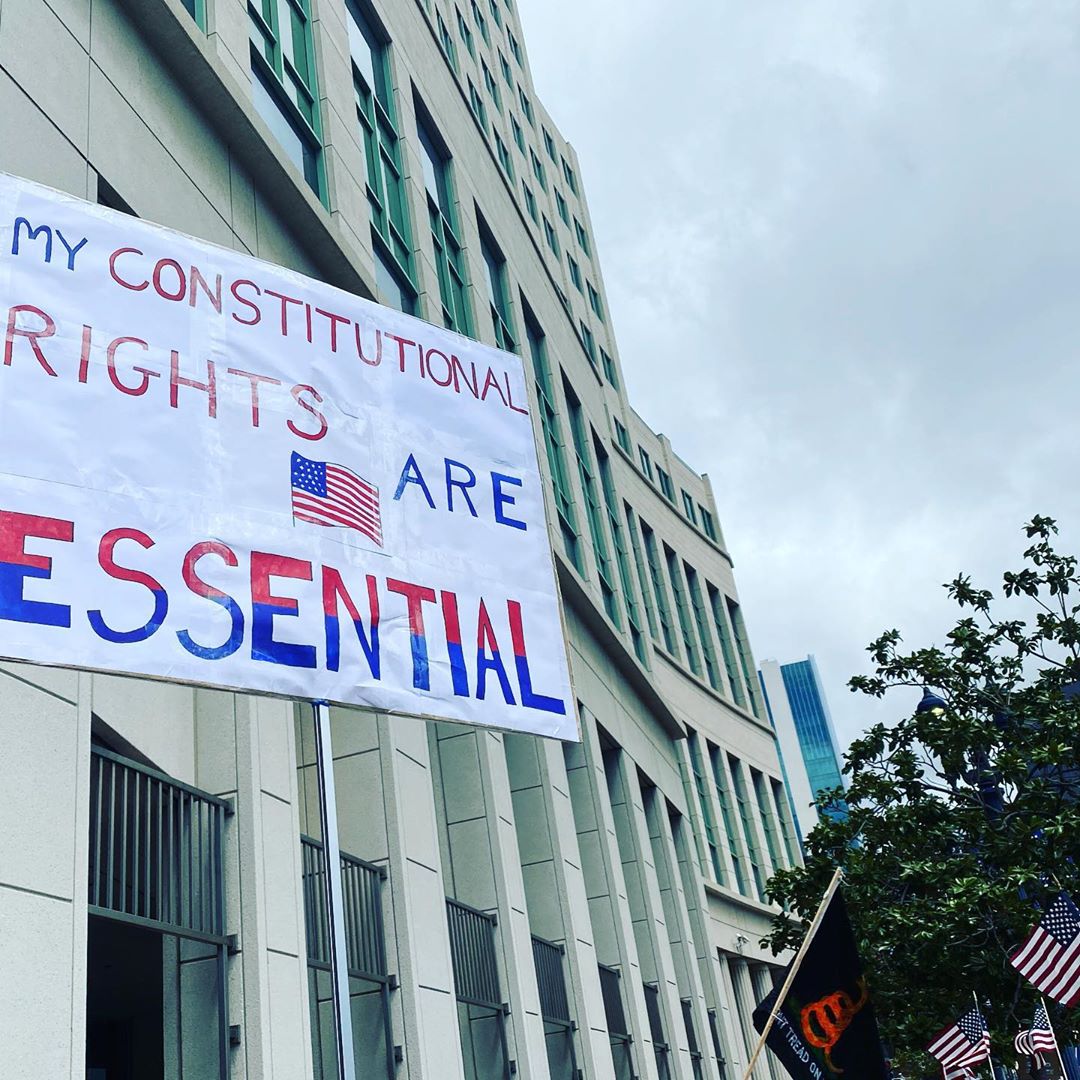 MY CONSTITUTIONAL
RIGHTS ARE
ESSENTIAL
TREAD ON